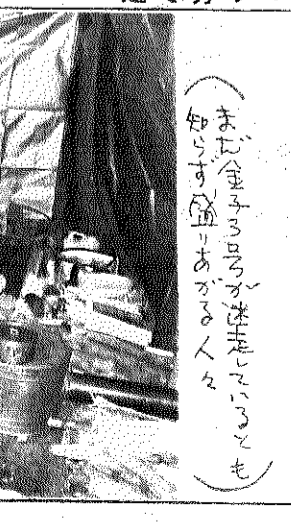 （まだ金子3号が迷走しているとも
知らず、盛りあがる人々）